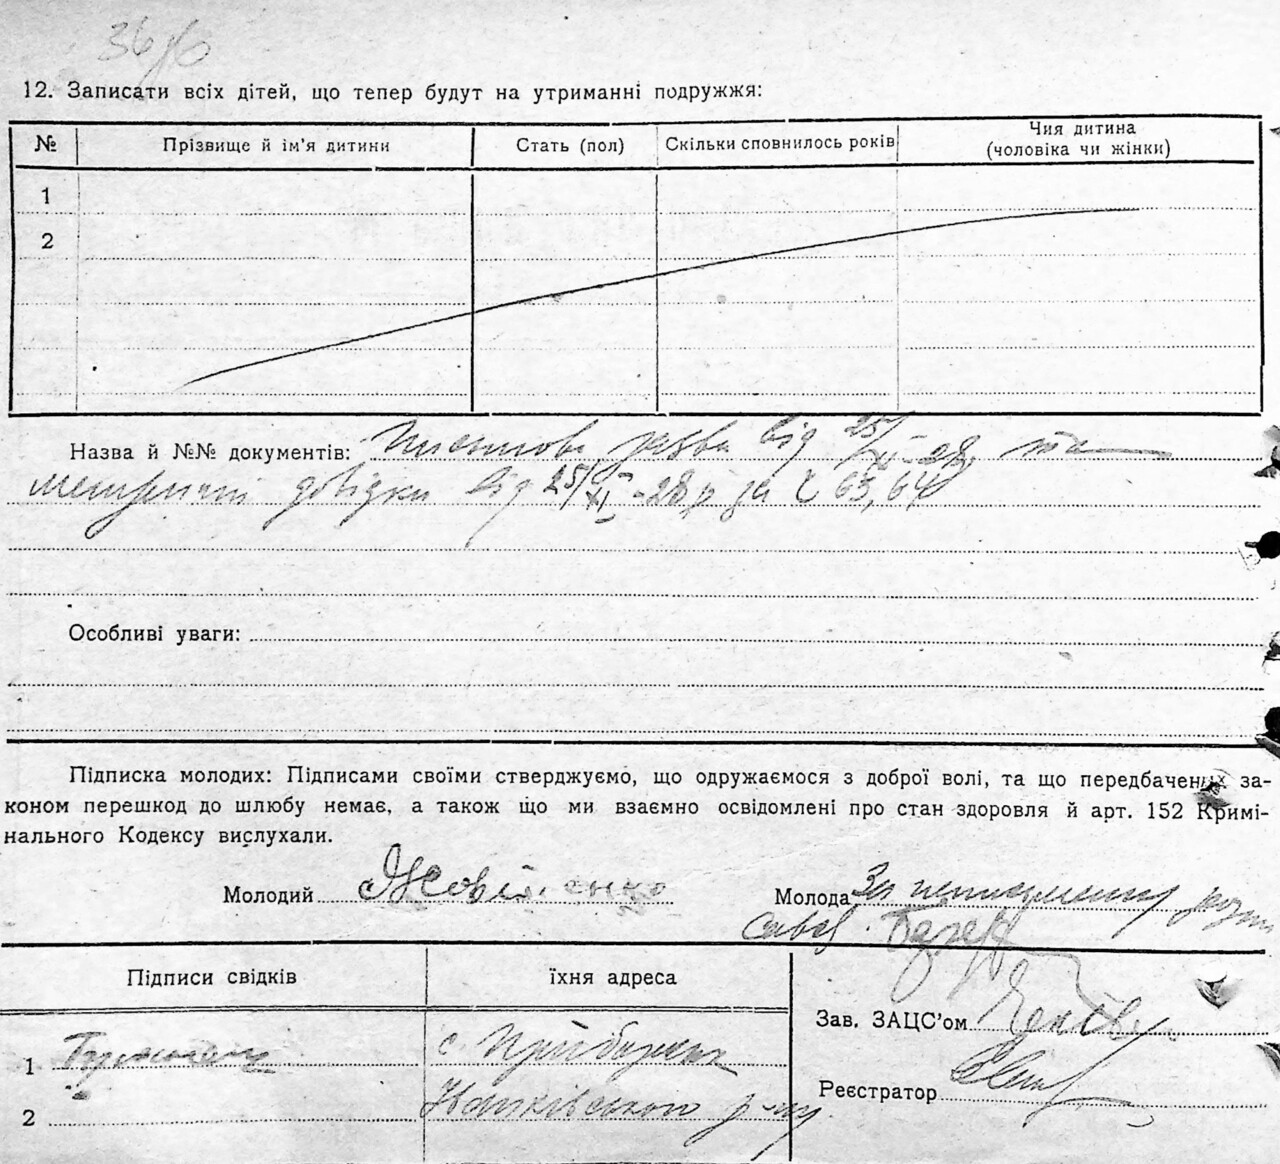 36/б
12. Записати всіх дітей, що тепер будут на утриманні подружжя:
№ Прізвище й ім'я дитини Стать (пол) Скільки сповнилось років Чия дитина
(чоловіка чи жінки)
1
2
Назва й №№ документів: Письмова заява від 25/XI-28р та
метричні довідки від 25/XI-28р за № 63, 64
Особливі уваги:
Підписка молодих: Підписами своїми стверджуємо, що одружаємося з доброї волі, та що передбачених за-
коном перешкод до шлюбу немає, а також що ми взаємно освідомлені про стан здоровля й арт. 152 Кримі-
нального Кодексу вислухали.
Молодий Молода За неписьменну
Підписи свідків їхня адреса
Зав. ЗАЦС'ом
1 с. Прибірськ
Реєстратор
2 р-ну